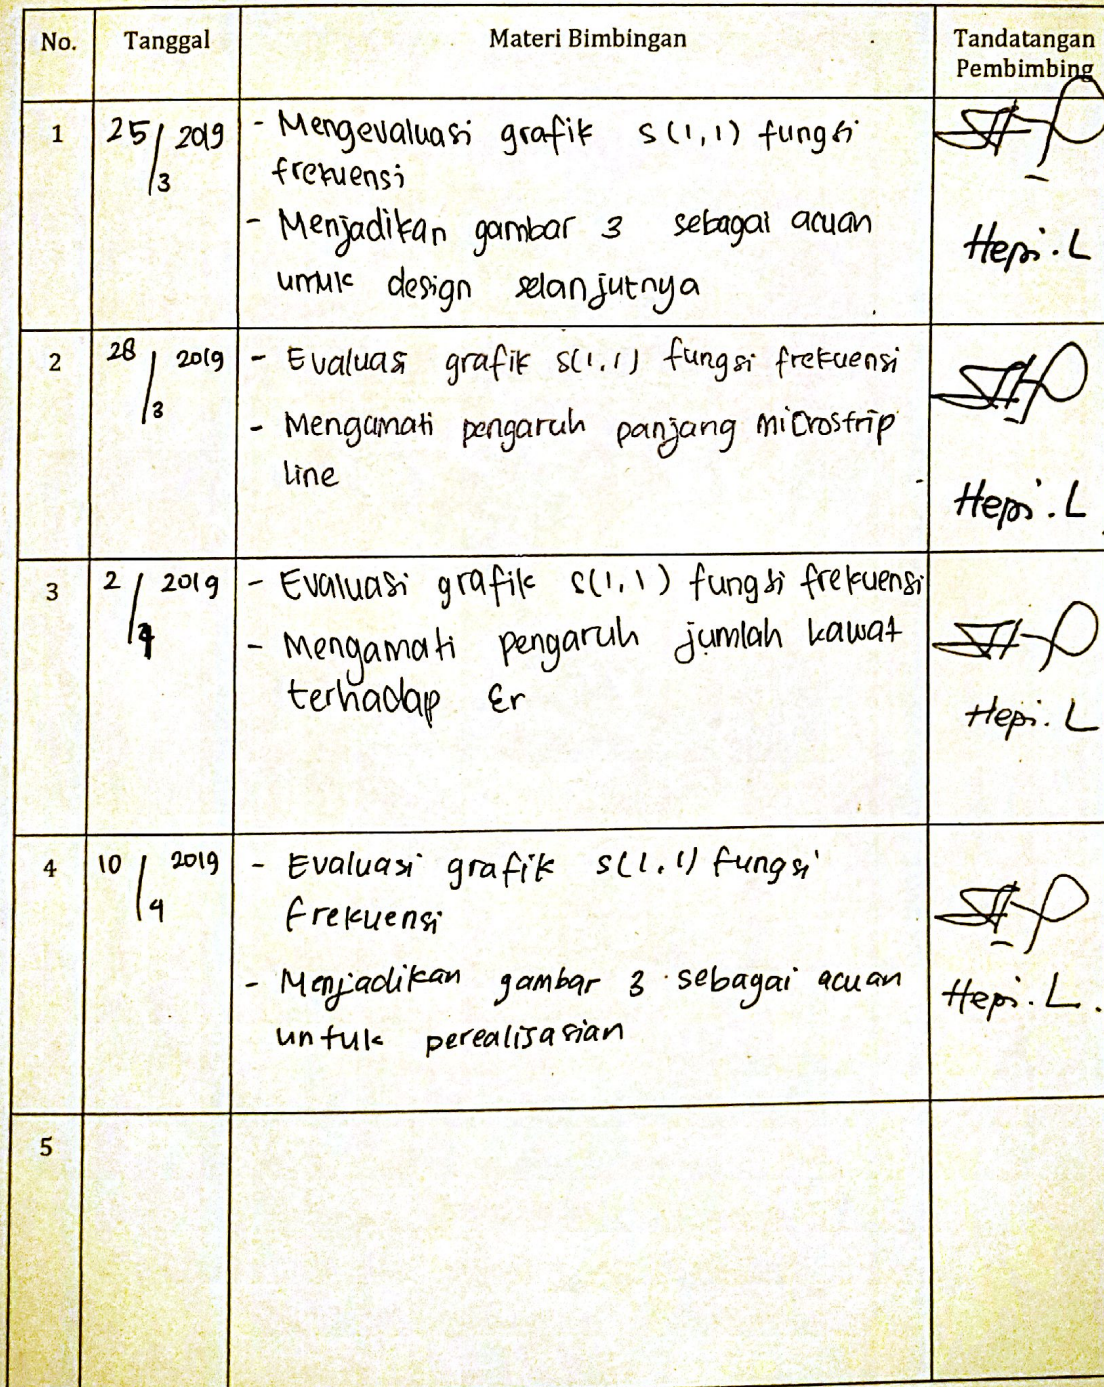 No. Tanggal Materi Bimbingan Tandatangan
Pembimbing
1 25/3 2019 - Mengevaluasi grafik S(1,1) fungsi
frekuensi
- Menjadikan gambar 3 sebagai acuan
untuk design selanjutnya
Hepi. L
2 28/3 2019 - Evaluasi grafik S(1,1) fungsi frekuensi
- Mengamati pengaruh panjang microstrip
line
Hepi. L
3 2/4 2019 - Evaluasi grafik S(1,1) fungsi frekuensi
- Mengamati pengaruh jumlah kawat
terhadap εr
Hepi. L
4 10/4 2019 - Evaluasi grafik S(1,1) fungsi
frekuensi
- Menjadikan gambar 3 sebagai acuan
untuk perealisasian
Hepi. L.
5